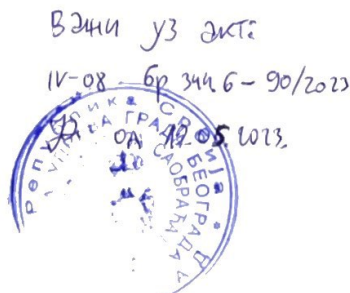 Важи уз акт:
IV-08 - бр 344.6-90/2023
од 19.05.2023.
Република Србија
УПРАВА ГРАДА БЕОГРАДА
САОБРАЋАЈ